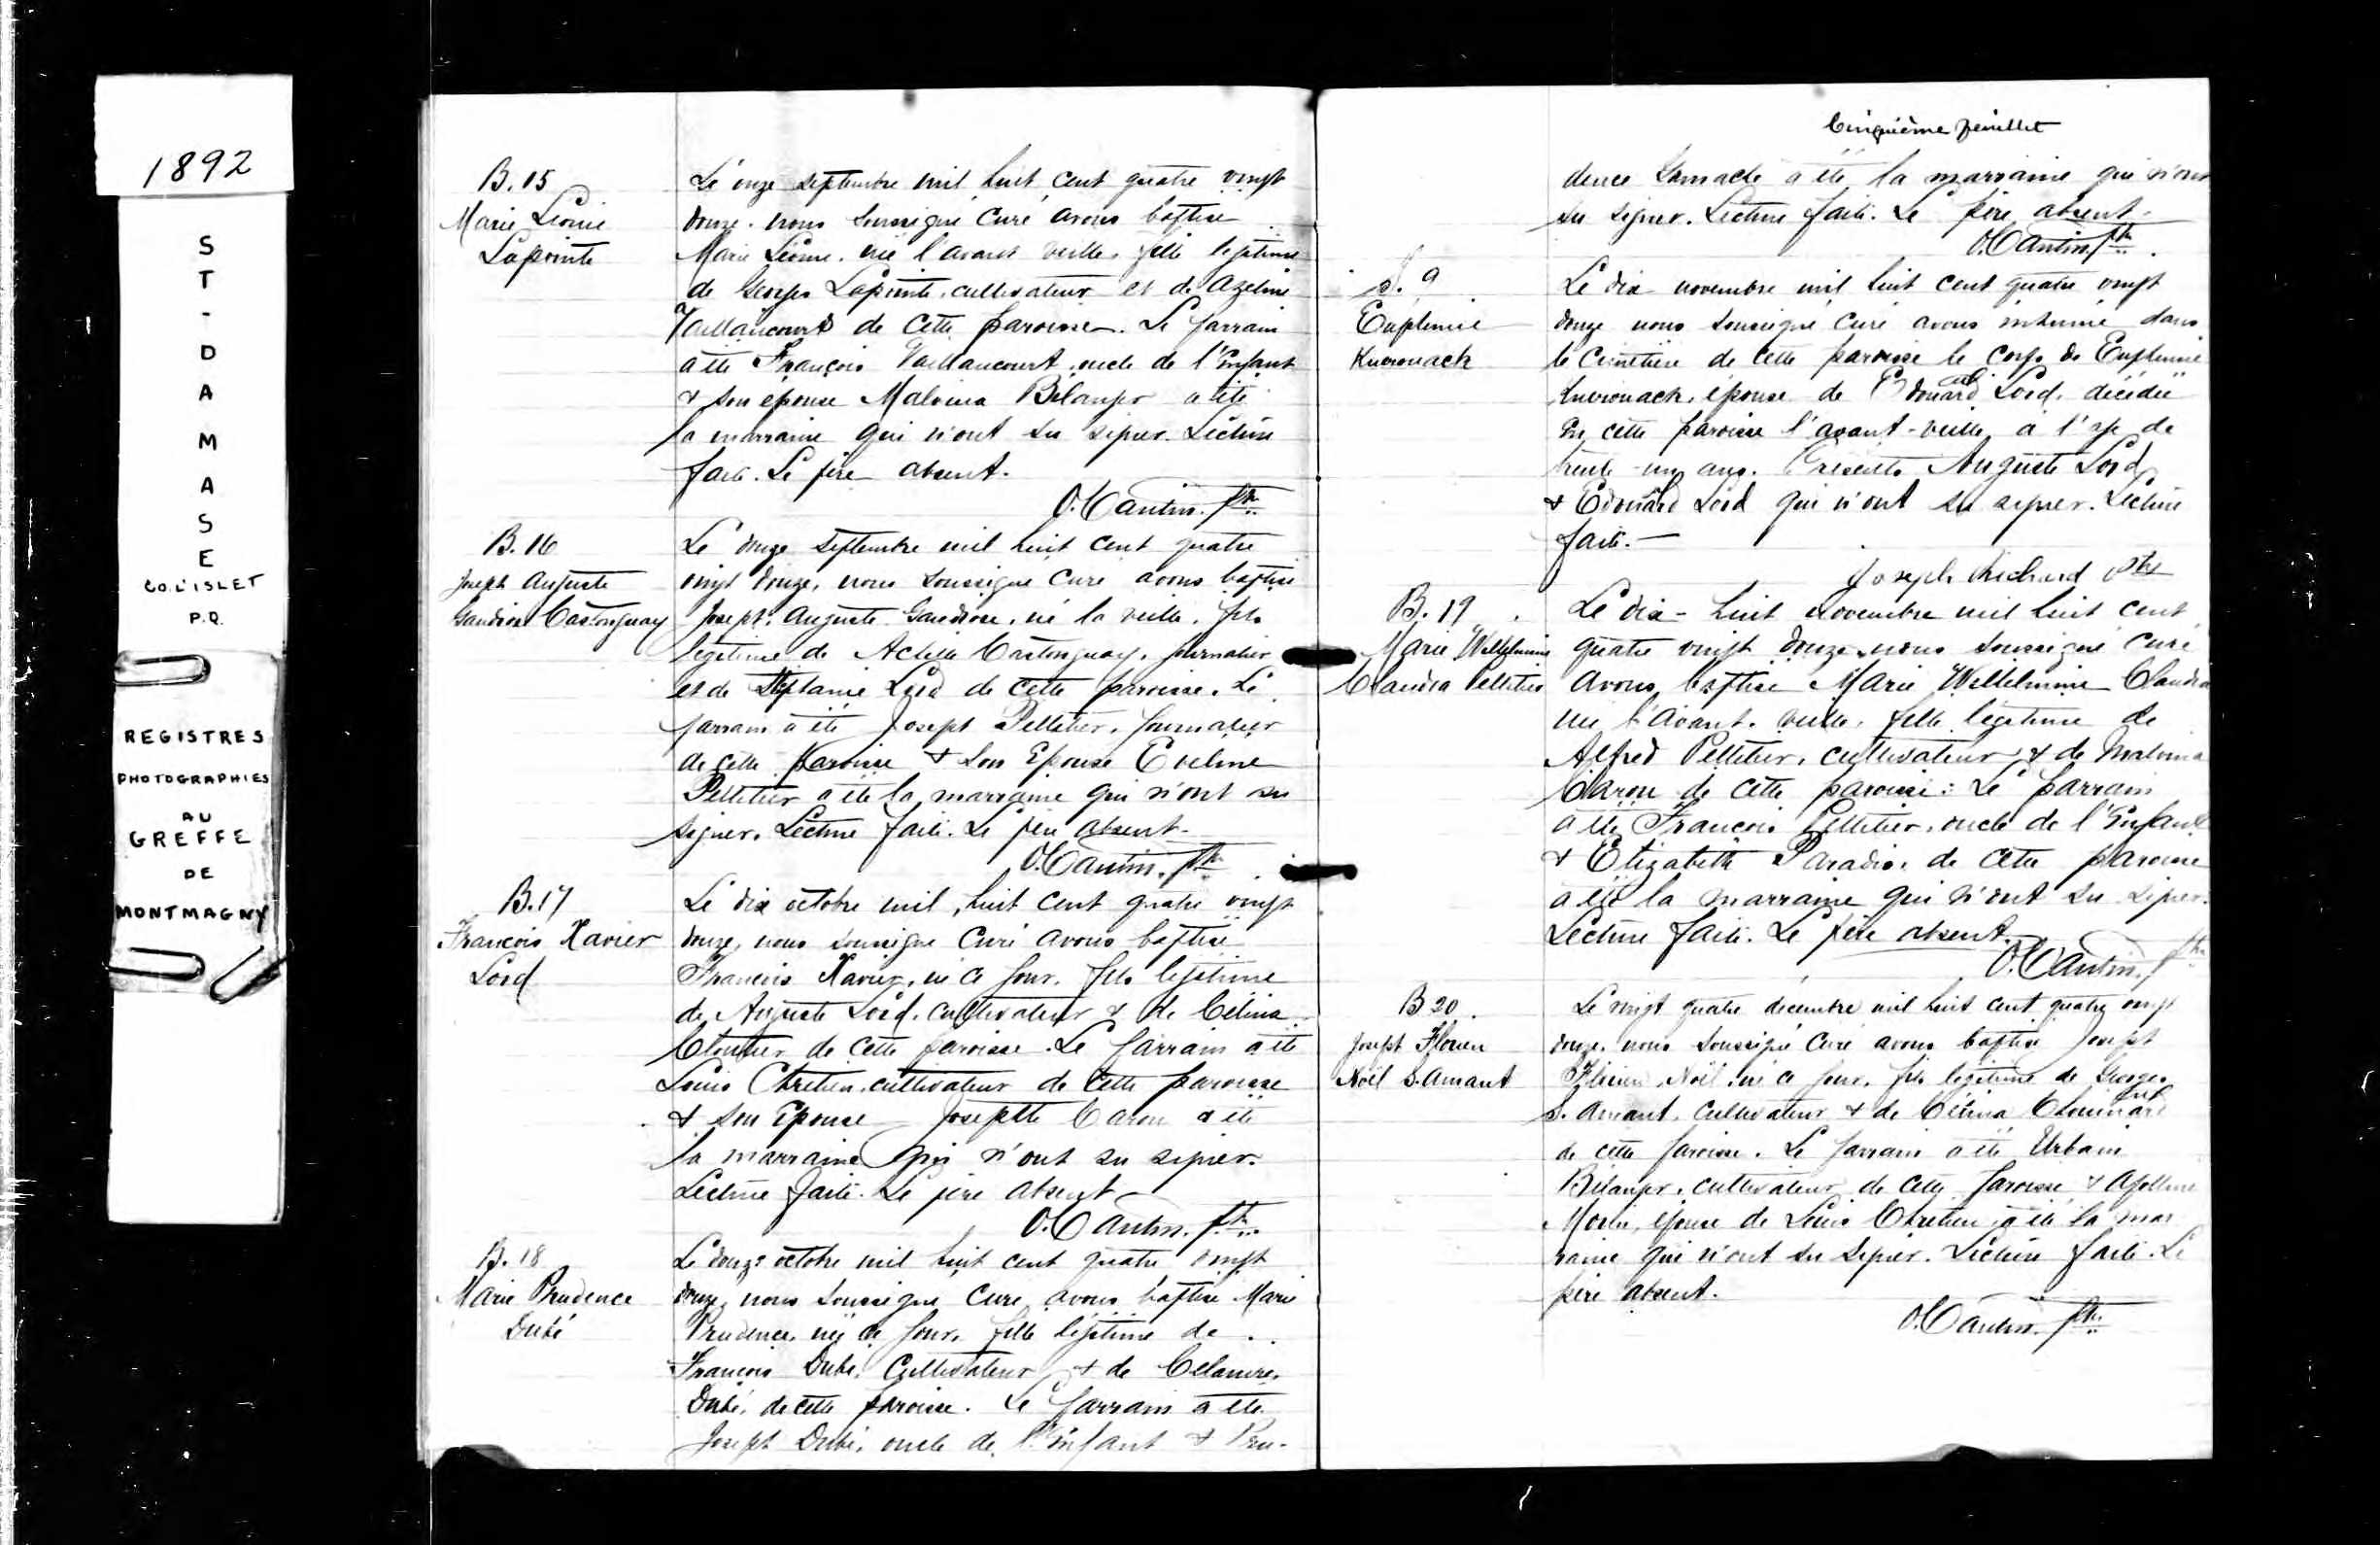 1892
ST-DAMASE
CO. L'ISLET
P.Q.
REGISTRES
PHOTOGRAPHIES
AU
GREFFE
DE
MONTMAGNY
B. 15
Marie Léonie
Lapointe
Le onze septembre mil huit cent quatre vingt
douze, nous soussigné Curé avons baptisé
Marie Léonie, née l'avant veille, fille légitime
de Georges Lapointe, cultivateur et de Azeline
Vaillancourt de cette paroisse. Le parrain
a été François Vaillancourt, oncle de l'Enfant
& son épouse Malvina Bélanger a été
la marraine qui n'ont su signer. Lecture
faite. Le père absent.
O. Cantin. Ptre
B. 16
Joseph Auguste
Gaudiose Castonguay
Le douze septembre mil huit cent quatre
vingt douze, nous soussigné Curé avons baptisé
Joseph Auguste Gaudiose, né la veille, fils
légitime de Achille Castonguay, journalier
et de Stéphanie Lord de cette paroisse. Le
parrain a été Joseph Pelletier, journalier
de cette Paroisse & son Epouse Eveline
Pelletier a été la marraine qui n'ont su
signer. Lecture faite. Le père absent-
O. Cantin. Ptre
B. 17
François Xavier
Lord
Le dix octobre mil huit cent quatre vingt
douze, nous soussigné Curé avons baptisé
François Xavier, né ce jour, fils légitime
de Auguste Lord, cultivateur & de Célina
Cloutier de cette paroisse. Le Parrain a été
Louis Chrétien, cultivateur de cette paroisse
& son Epouse Josephte Caron a été
la marraine qui n'ont su signer.
Lecture faite. Le père absent-
O. Cantin. Ptre
B. 18
Marie Prudence
Dubé
Le douze octobre mil huit cent quatre vingt
douze, nous soussigné Curé avons baptisé Marie
Prudence, née ce jour, fille légitime de
François Dubé, Cultivateur & de
Dubé, de cette paroisse. Le parrain a été
Joseph Dubé, oncle de l'Enfant & Pru-
Cinquième feuillet
dence Gamache a été la marraine qui n'ont
su signer. Lecture faite. Le père absent-
O. Cantin. Ptre
S. 9
Euphémie
Kuerouack
Le dix novembre mil huit cent quatre vingt
douze nous soussigné Curé avons inhumé dans
le Cimetière de cette paroisse le corps de Euphémie
Kuerouack, épouse de Edouard Lord, décédée
en cette paroisse l'avant-veille, à l'age de
trente-un ans. Présents Auguste Lord
& Edouard Lord qui n'ont su signer. Lecture
faite.-
Joseph Richard Ptre
B. 19
Marie Wilhelmine
Claudia Pelletier
Le dix-huit novembre mil huit cent
quatre vingt douze, nous soussigné Curé
avons baptisé Marie Wilhelmine Claudia
née l'avant-veille, fille légitime de
Alfred Pelletier, cultivateur & de Malvina
Caron de cette paroisse: Le parrain
a été François Pelletier, oncle de l'Enfant
& Elizabeth Paradis, de cette paroisse
a été la marraine qui n'ont su signer.
Lecture faite. Le père absent.
O. Cantin. Ptre
B 20.
Joseph
Noël S. Amant
Le vingt quatre décembre mil huit cent quatre vingt
douze, nous soussigné Curé avons baptisé Joseph
Noël, né ce jour, fils légitime de Georges
S. Amant, cultivateur & de Célina Chouinard
de cette paroisse. Le parrain a été Urbain
Bélanger, cultivateur de cette paroisse & Apolline
Morin, épouse de Louis Chrétien, a été la mar
raine qui n'ont su signer. Lecture faite. Le
père absent.
O. Cantin. Ptre